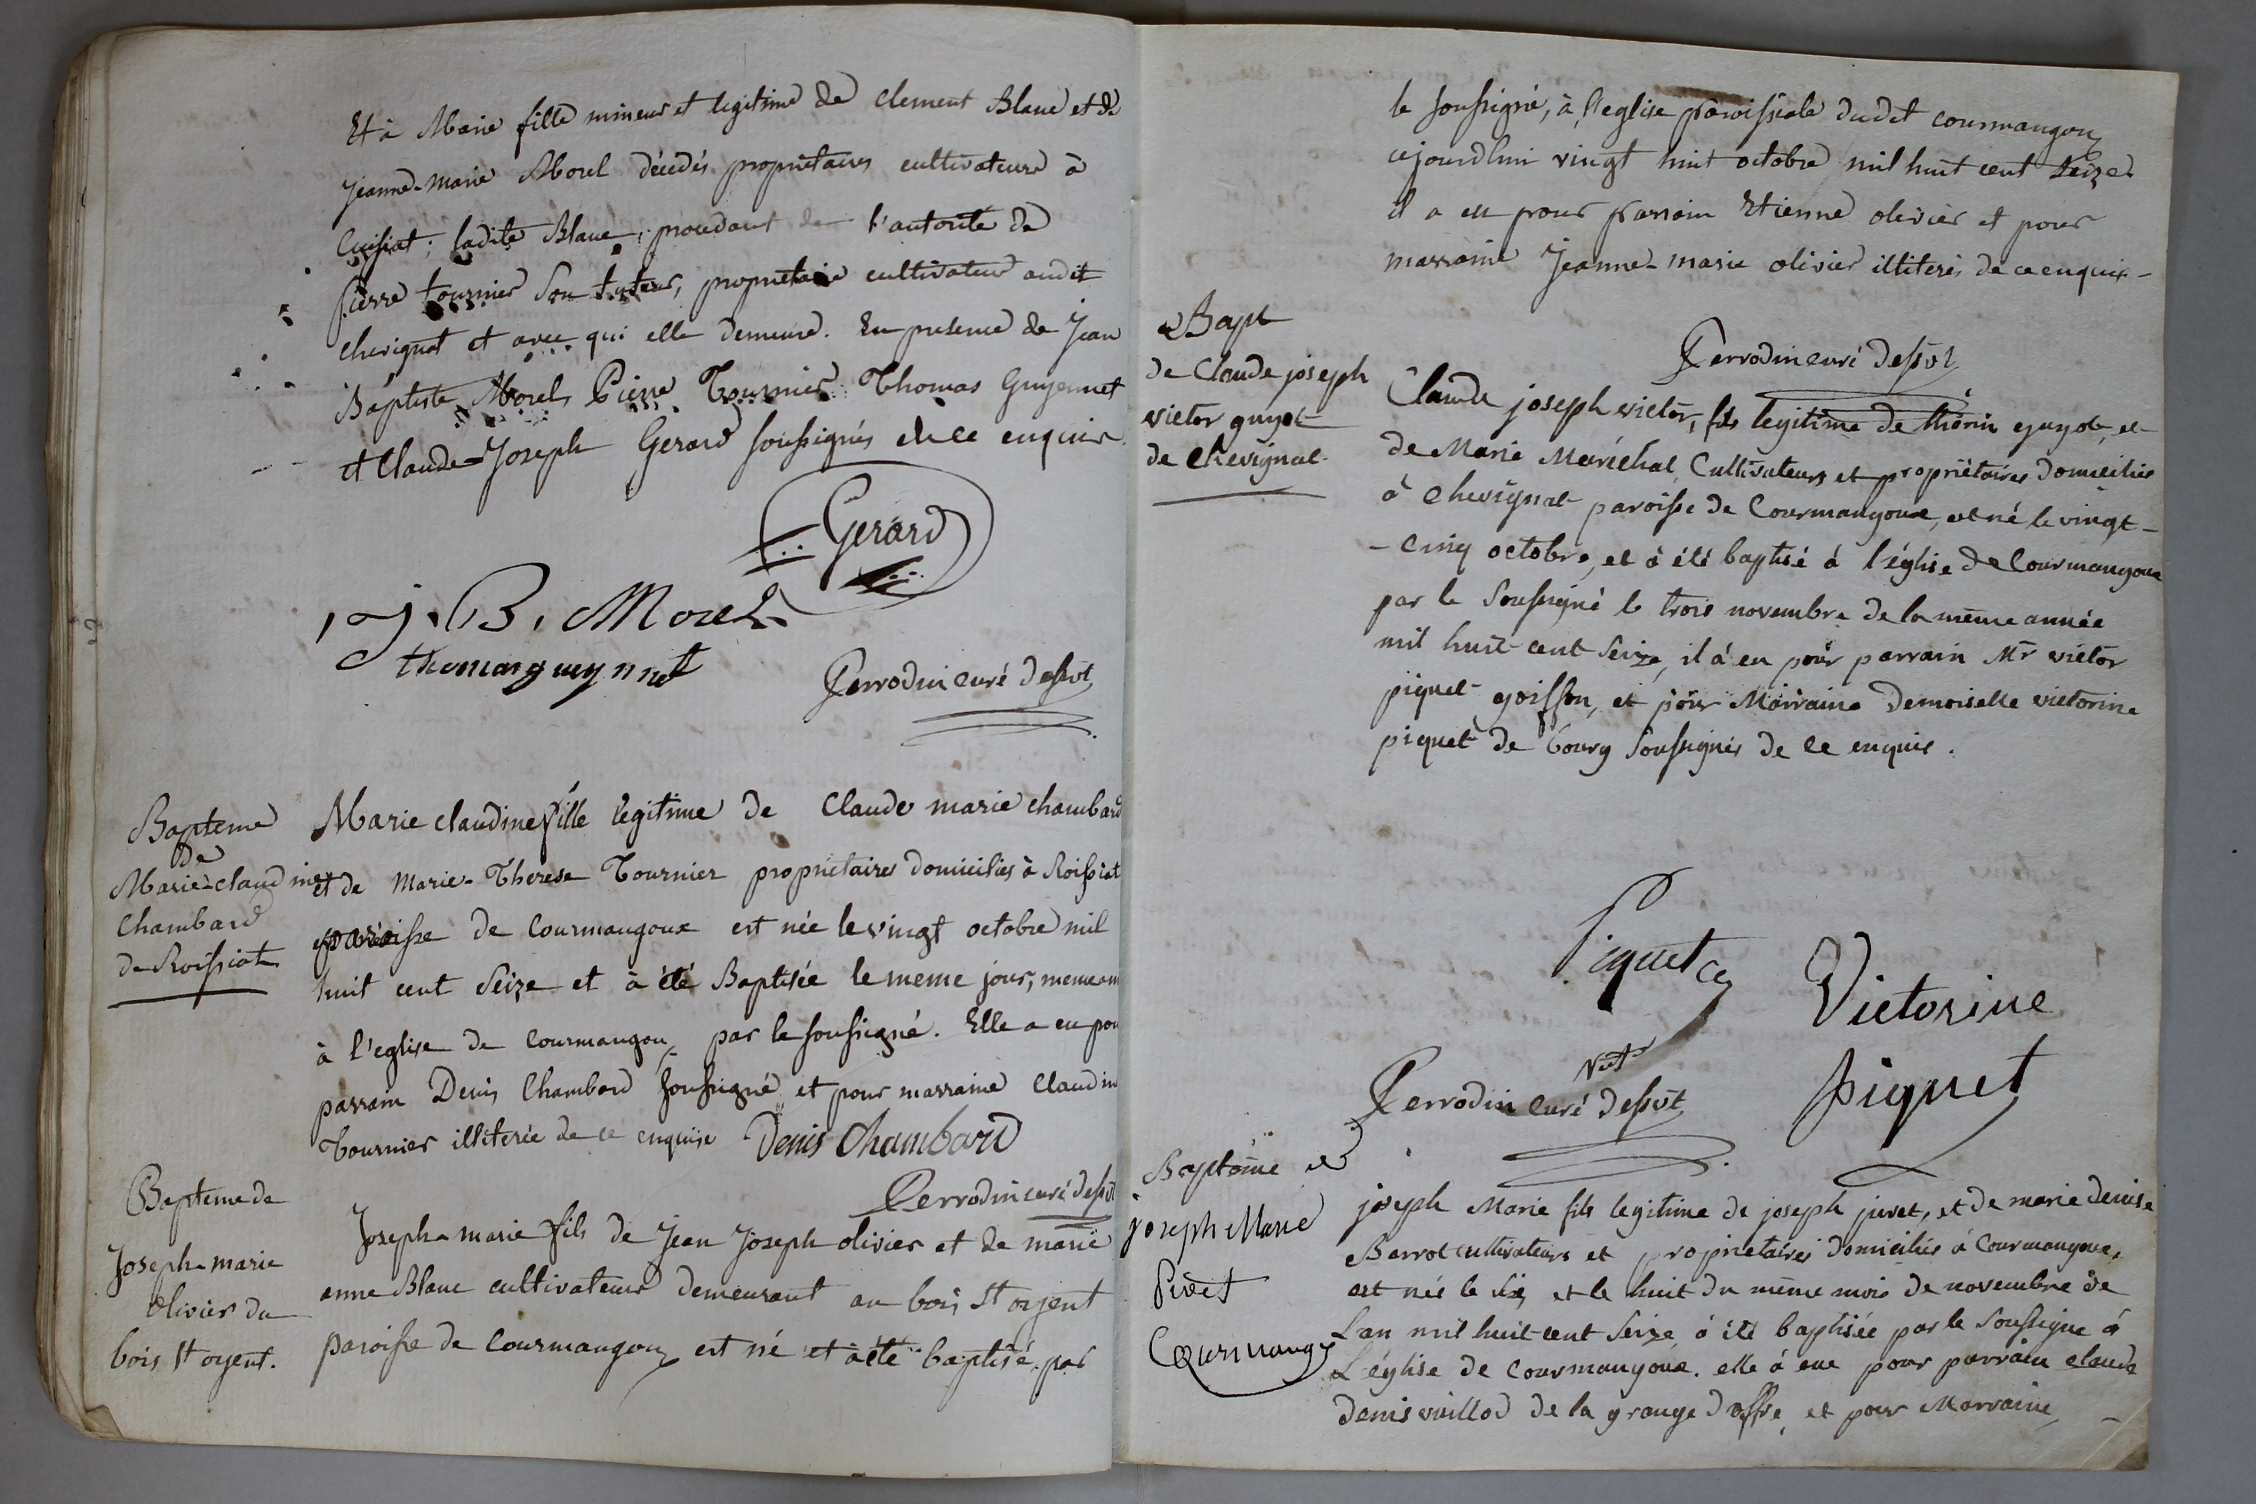 Et à Marie fille mineur et legitime de Clement Blanc et de
Jeanne-marie Morel décédés proprietaires cultivateurs à
Cuisiat ; ladite Blanc, procedant de l'autorité de
pierre tournier son tuteur, proprietaire cultivateur audit
chevignat et avec qui elle demeure. En presence de Jean
Baptiste Morel, Pierre Tournier Thomas Guyennet
et Claude-Joseph Gerard soussignés de ce enquis.
Gerard
J. B. Morel
thomas guynnet
Perrodin curé dessvt
Bapteme
de
Marie-claudine
Chambard
de Roissiat
Marie claudine fille legitime de Claude marie chambard
et de Marie-Therese Tournier propriétaires domiciliés à Roissiat
paroisse de Courmangoux est née le vingt octobre mil
huit cent Seize et à été Baptisée le meme jour, meme an
à l'eglise de Courmangoux par le soussigné. Elle a eu pou
parrain Denis Chambard soussigné et pour marraine Claudin
Tournier illiterée de ce enquise Denis Chambard
Perrodin curé dessvt
Bapteme de
Joseph-marie
olivier du
bois St orgent.
Joseph-marie fils de Jean Joseph olivier et de marie
anne Blanc cultivateurs demeurant au bois St orgent
paroisse de Courmangoux est né et à été baptisé par
le soussigné, à l'eglise paroissiale dudit courmangoux
cejourdhui vingt huit octobre mil huit cent seize
il a eu pour parrain Etienne olivier et pour
marraine Jeanne-marie olivier illiterés de ce enquis-
Perrodin curé dessvt
Bapt
de Claude joseph
victor guyot
de chevignat
Claude joseph victor, fils legitime de thorin guyot, et
de Marie Maréchal Cultivateurs et propriétaires domiciliés
à chevignat paroisse de Courmangoux, est né le vingt-
-cinq octobre, et à été baptisé à l'église de Courmangoux
par le soussigné le trois novembre de la même année
mil huit cent seize, il à eu pour parrain Mr victor
piquet goisson, et pour Marraine demoiselle victorine
piquet de bourg soussignés de ce enquis.
Piquet
Victorine
Vict
piquet
Perrodin curé dessvt
Baptême de
joseph Marie
Pivet
Courmangx
joseph Marie fils legitime de joseph pivet, et de marie denise
Barrot cultivateurs et propriétaires domiciliés à Courmangoux,
est née le six, et le huit du même mois de novembre de
L'an mil huit cent seize à été baptisée par le soussigné à
L'église de courmangoux. elle à eue pour parrain claude
denis vuillod de la grange d'offre, et pour Marraine